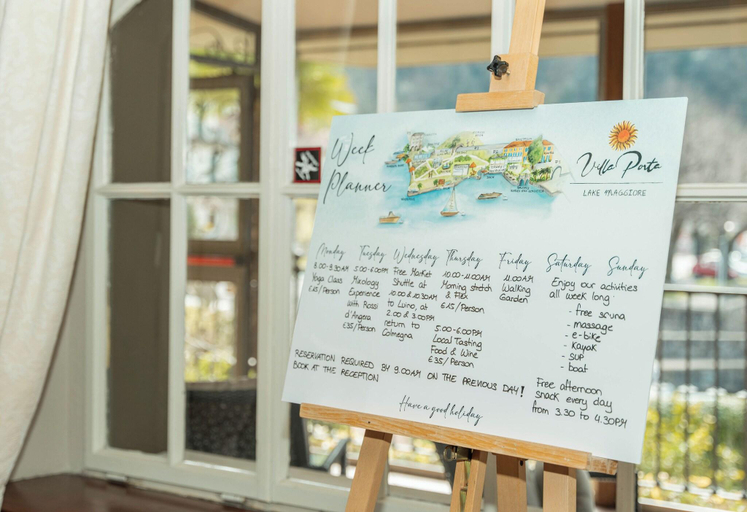 Week
Planner
Villa Porta
LAKE MAGGIORE
Monday
8.00-9.30AM
Yoga Class
Tuesday
5.00-6.00PM
Mixology
Experience
with Rossi
d'Angera
€35/Person
Wednesday
Free Market
Shuttle at
10.00 & 10.30AM
to Luino, at
2.00 & 3.00PM
return to
Colmegna
Thursday
10.00-11.00AM
Morning stretch
& Flex
€15/Person
5.00-6.00PM
Local Tasting
Food & Wine
€35/Person
Friday
11.00AM
Walking
Garden
Saturday Sunday
Enjoy our activities
all week long:
- free sauna
- massage
- e-bike
- kayak
- SUP
- boat
Free afternoon
snack every day
from 3.30 to 4.30PM
RESERVATION REQUIRED BY 9.00AM ON THE PREVIOUS DAY!
BOOK AT THE RECEPTION
Have a good holiday